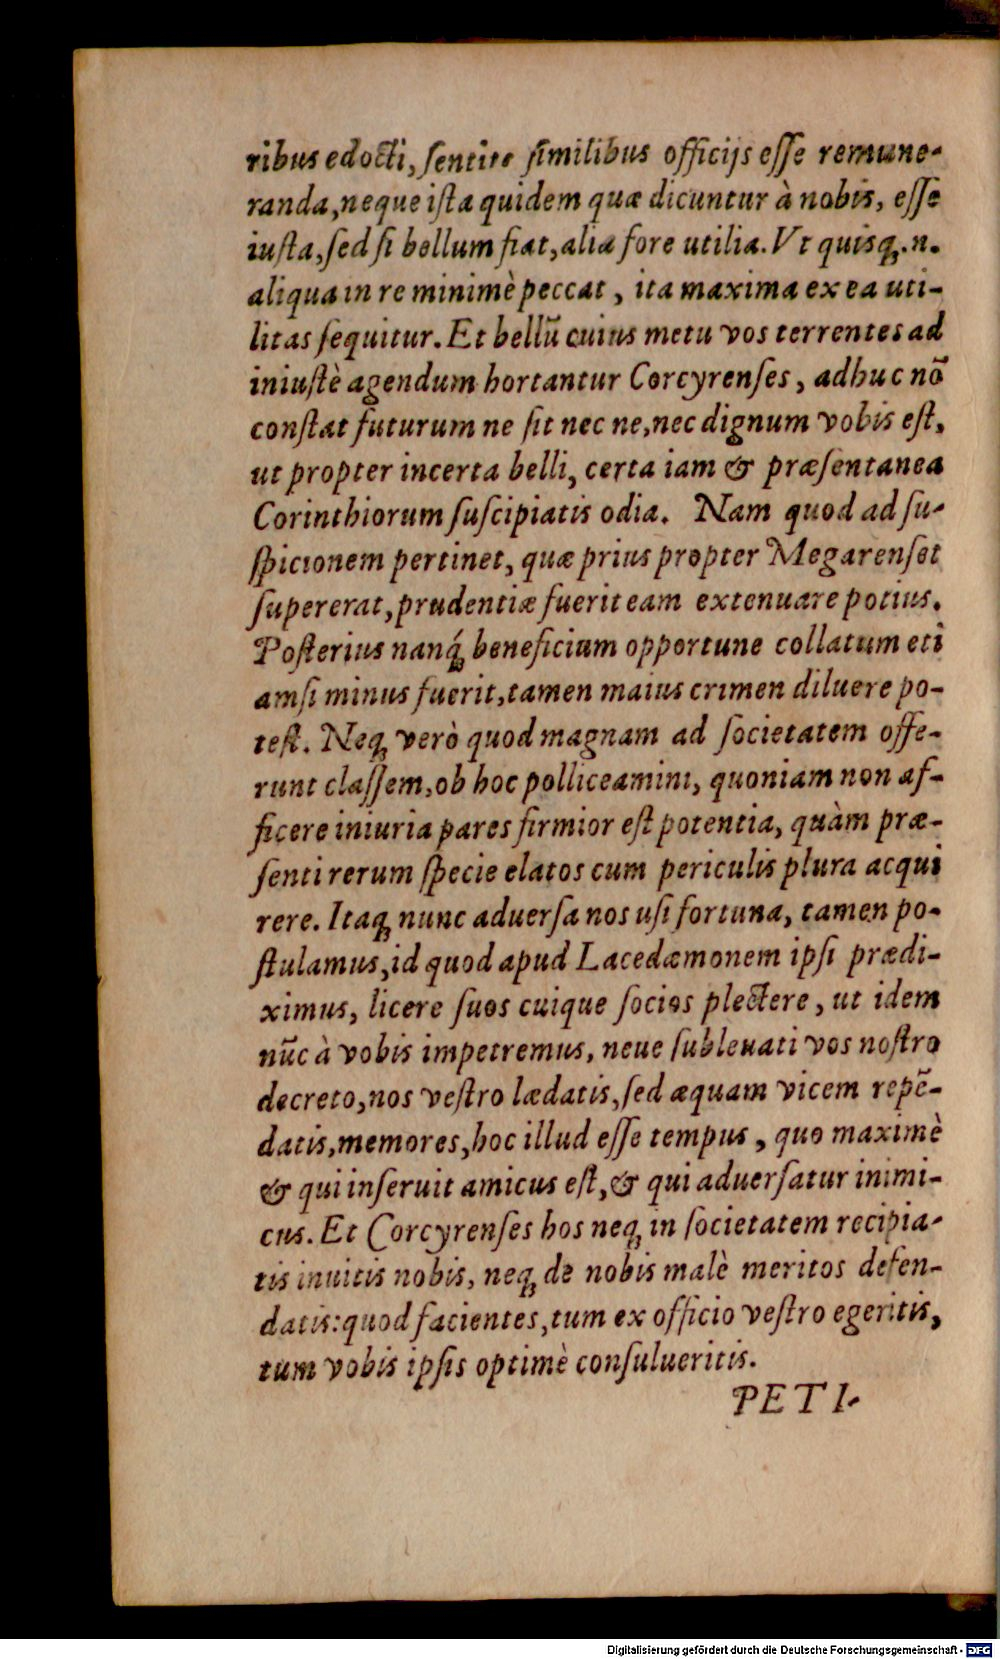 ribus edocti, ſentite ſimilibus officijs eſſe remune-
randa, neque iſta quidem quæ dicuntur à nobis, eſſe
iuſta, ſed ſi bellum fiat, alia fore utilia. Vt quisq́;.n.
aliqua in re minimè peccat, ita maxima ex ea uti-
litas ſequitur. Et bellū cuius metu vos terrentes ad
iniuſtè agendum hortantur Corcyrenſes, adhuc nō
conſtat futurum ne ſit nec ne, nec dignum vobis eſt,
ut propter incerta belli, certa iam & præſentanea
Corinthiorum ſuſcipiatis odia. Nam quod ad ſu-
ſpicionem pertinet, quæ prius propter Megarenſet
ſupererat, prudentiæ fuerit eam extenuare potius.
Poſterius nanq́; beneficium opportune collatum eti
amſi minus fuerit, tamen maius crimen diluere po-
teſt. Neq; verò quod magnam ad ſocietatem offe-
runt claſſem, ob hoc polliceamini, quoniam non af-
ficere iniuria pares firmior eſt potentia, quàm præ-
ſenti rerum ſpecie elatos cum periculis plura acqui
rere. Itaq; nunc aduerſa nos uſi fortuna, tamen po-
ſtulamus, id quod apud Lacedæmonem ipſi prædi-
ximus, licere ſuos cuique ſocios plectere, ut idem
nūc à vobis impetremus, neue ſubleuati vos noſtro
decreto, nos veſtro lædatis, ſed æquam vicem repē-
datis, memores, hoc illud eſſe tempus, quo maximè
& qui inſeruit amicus eſt, & qui aduerſatur inimi-
cus. Et Corcyrenſes hos neq; in ſocietatem recipia-
tis inuitis nobis, neq; de nobis malè meritos defen-
datis: quod facientes, tum ex officio veſtro egeritis,
tum vobis ipſis optimè conſulueritis.
PETI-
Digitalisierung gefördert durch die Deutsche Forschungsgemeinschaft - DFG